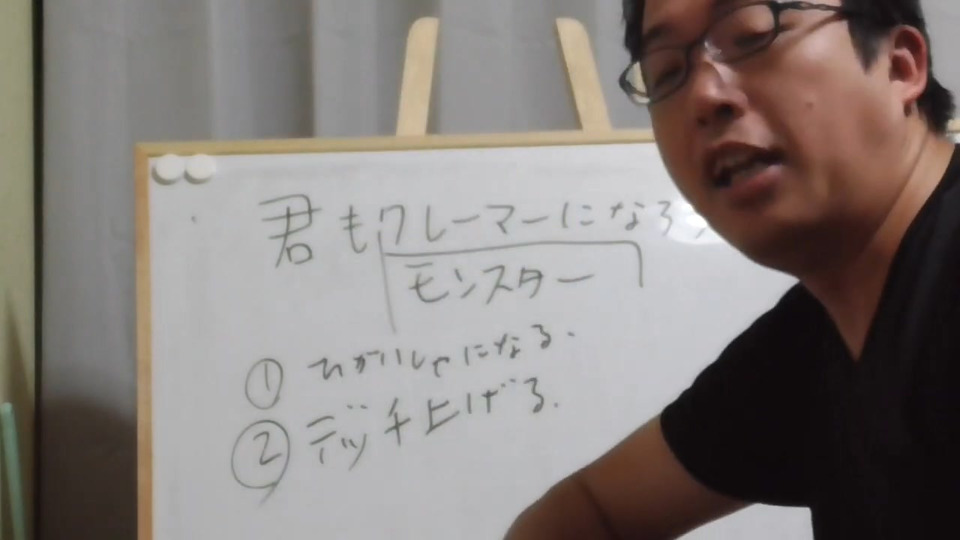 君もクレーマーになろ
モンスター
① ひがいしゃになる.
② デッチ上げる.